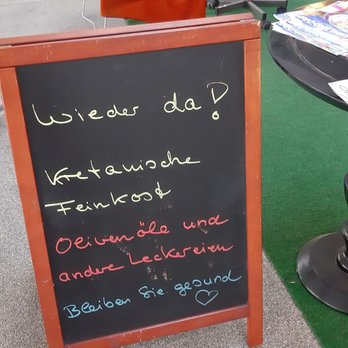 Wieder da!
Kretanische
Feinkost
Olivenöle und
andere Leckereien
Bleiben Sie gesund